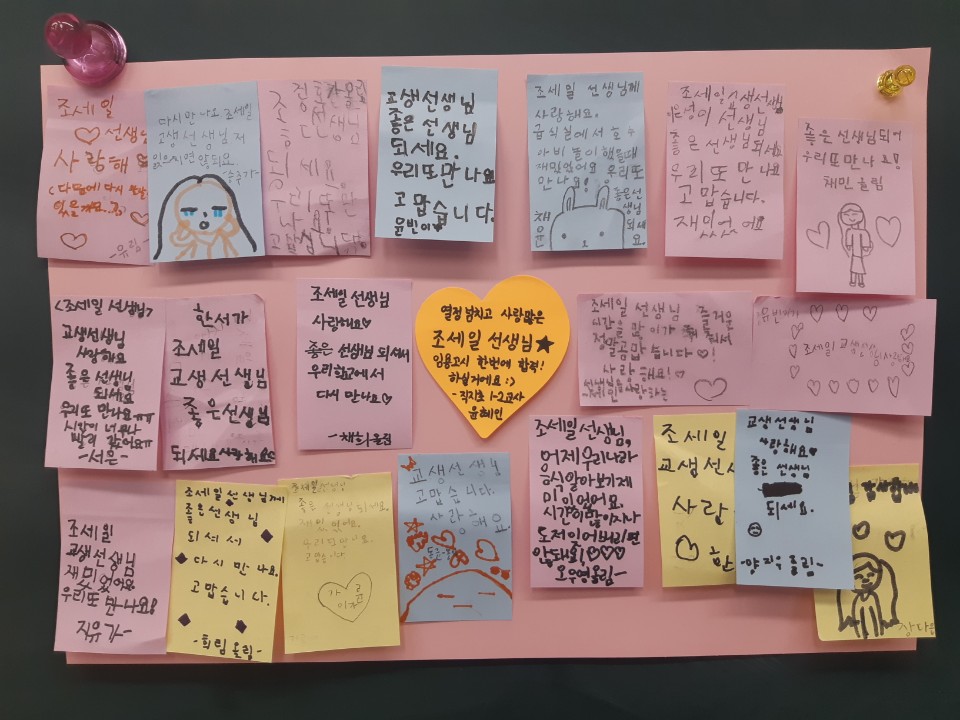 조세일
선생님
사랑해
-유림-
다시만나요 조세일
교생선생님 저
잊으시면 안되요
교생선생님
좋은 선생님
되세요.
우리또만나요
고맙습니다.
윤빈이
조세일 선생님께
사랑해요.
급식실에서
놀이했을때
재미있었어요 우리또
만나요!
좋은선생님
되세요.
채윤
조세일교생선생님
선생님
좋은 선생님되세요
우리또만나요
고맙습니다.
재밌었어요
좋은선생님되어
우리또만나요!
채민올림
<조세일 선생님>
교생선생님
사랑해요
좋은 선생님
되세요
우리또만나요
시간이 너무나
빨리
-서은-
한서가
조세일
교생선생님
좋은선생님
되세요사랑해요
조세일선생님
사랑해요♡
좋은 선생님 되셔서
우리학교에서
다시 만나요♡
-채희올림
열정넘치고 사랑많은
조세일 선생님★
임용고시 한번에 합격!
하실거예요 :)
-직지초 1-2교사
윤혜인
조세일 선생님
즐거운
시간을 많이
정말고맙습니다♡!
사랑해요!
조세일 교생선생님
조세일
교생선생님
재밌었어요
우리또만나요!
지유가-
조세일선생님께
좋은선생님
되셔서
다시 만나요.
고맙습니다.
-희림올림-
조세일선생님
좋은 선생님되세요.
재밌었어요.
우리또만나요.
고맙습니다
교생선생님
고맙습니다.
사랑해요.
조세일선생님,
어제우리나라
음식알아보기재
미있었어요.
시간이많이지나
도저잊어버리면
안돼요!♡♡♡
오우영올림-
조세일
교생선
사랑
교생선생님
사랑해요♡
좋은 선생님
되세요.
-양지우올림-
장다은